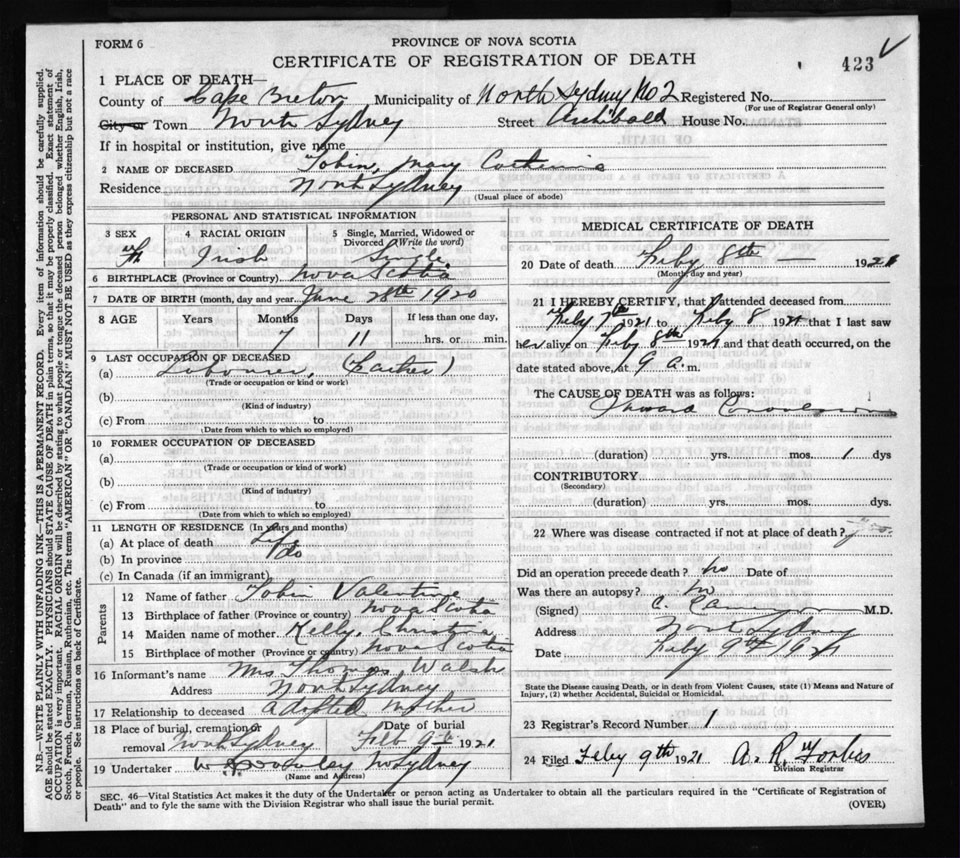 FORM 6
PROVINCE OF NOVA SCOTIA
CERTIFICATE OF REGISTRATION OF DEATH
423
1 PLACE OF DEATH—
County of Cape Breton Municipality of North Sydney No 2 Registered No.
(For use of Registrar General only)
City or Town North Sydney Street Archibald House No.
If in hospital or institution, give name
2 NAME OF DECEASED Tobin, Mary Catherine
Residence North Sydney
(Usual place of abode)
PERSONAL AND STATISTICAL INFORMATION
3 SEX 4 RACIAL ORIGIN 5 Single, Married, Widowed or Divorced (Write the word)
F Irish Single
6 BIRTHPLACE (Province or Country) Nova Scotia
7 DATE OF BIRTH (month, day and year) June 28th 1920
8 AGE Years Months Days If less than one day,
7 11 hrs. or min.
9 LAST OCCUPATION OF DECEASED
(a) Labourer, (Father)
(Trade or occupation or kind or work)
(b)
(Kind of industry)
(c) From to
(Date from which to which so employed)
10 FORMER OCCUPATION OF DECEASED
(a)
(Trade or occupation or kind of work)
(b)
(Kind of industry)
(c) From to
(Date from which to which so employed)
11 LENGTH OF RESIDENCE (In years and months)
(a) At place of death Life
(b) In province do
(c) In Canada (if an immigrant)
Parents
12 Name of father Tobin Valentine
13 Birthplace of father (Province or country) Nova Scotia
14 Maiden name of mother Kelly, Christis
15 Birthplace of mother (Province or country) Nova Scotia
16 Informant's name Mrs Thomas Walsh
Address North Sydney
17 Relationship to deceased adopted Mother
18 Place of burial, cremation or removal North Sydney Date of burial Feb 9th 1921
19 Undertaker N Sydney
(Name and Address)
MEDICAL CERTIFICATE OF DEATH
20 Date of death Feby 8th — 1921
(Month, day and year)
21 I HEREBY CERTIFY, that I attended deceased from
Feby 7th 1921 to Feby 8 1921 that I last saw
her alive on Feby 8th 1921 and that death occurred, on the
date stated above, at 9 a.m.
The CAUSE OF DEATH was as follows:
(duration) yrs. mos. 1 dys
CONTRIBUTORY
(Secondary)
(duration) yrs. mos. dys.
22 Where was disease contracted if not at place of death?
Did an operation precede death? no Date of
Was there an autopsy? no
(Signed) C. M.D.
Address North Sydney
Date Feby 9th 1921
State the Disease causing Death, or in death from Violent Causes, state (1) Means and Nature of
Injury, (2) whether Accidental, Suicidal or Homicidal.
23 Registrar's Record Number 1
24 Filed Feby 9th 1921 A. R. Forbes
Division Registrar
SEC. 46—Vital Statistics Act makes it the duty of the Undertaker or person acting as Undertaker to obtain all the particulars required in the "Certificate of Registration of
Death" and to fyle the same with the Division Registrar who shall issue the burial permit.
(OVER)
N.B.—WRITE PLAINLY WITH UNFADING INK—THIS IS A PERMANENT RECORD. Every item of information should be carefully supplied.
AGE should be stated EXACTLY. PHYSICIANS should STATE CAUSE OF DEATH in plain terms, so that it may be properly classified. Exact statement of
OCCUPATION is very important. RACIAL ORIGIN will be described by stating to what people or tongue the deceased person belonged whether English, Irish,
Scotch, French, German, Russian, Ruthenian, etc. The terms "AMERICAN" OR "CANADIAN" MUST NOT BE USED as they express citizenship but not a race
or people. See instructions on back of Certificate.